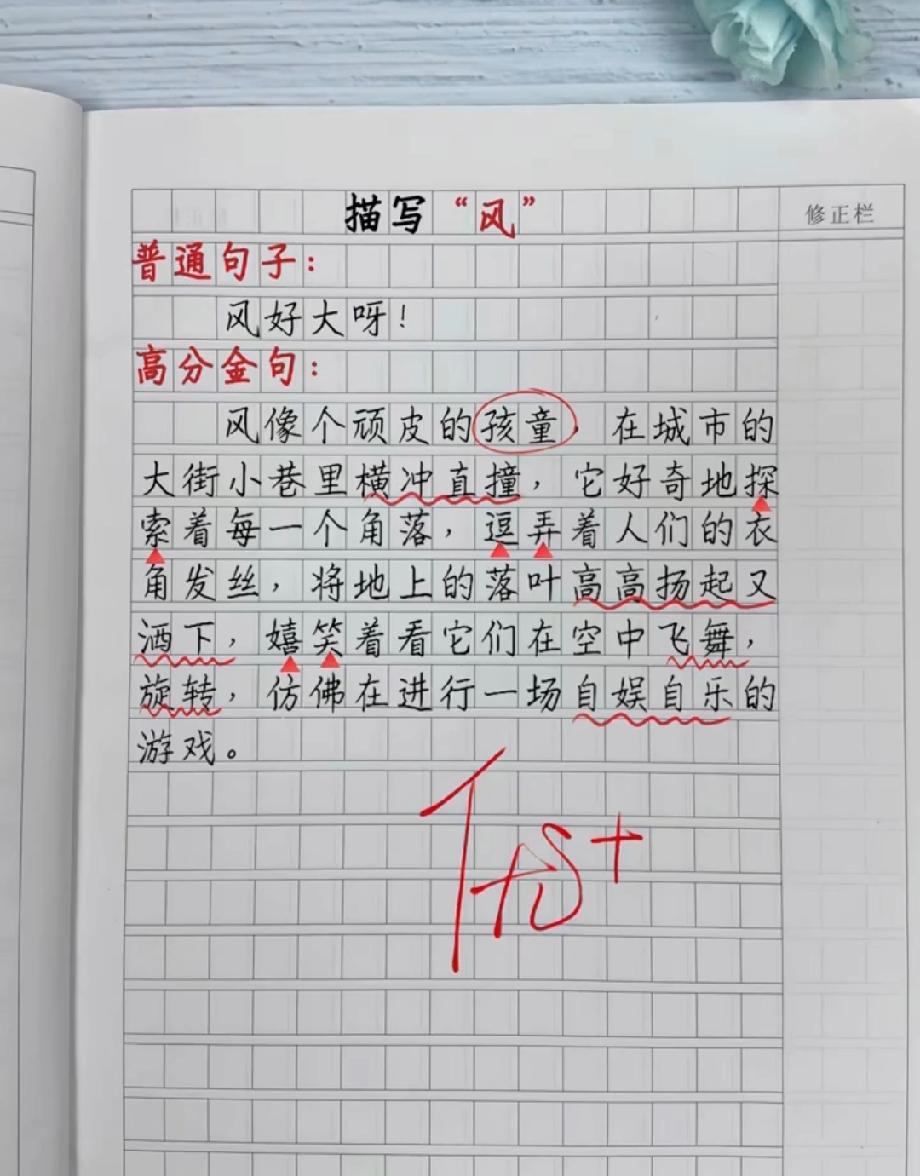 描写“风”
修正栏
普通句子：
风好大呀！
高分金句：
风像个顽皮的孩童，在城市的
大街小巷里横冲直撞，它好奇地探
索着每一个角落，逗弄着人们的衣
角发丝，将地上的落叶高高扬起又
洒下，嬉笑着看它们在空中飞舞，
旋转，仿佛在进行一场自娱自乐的
游戏。
优+